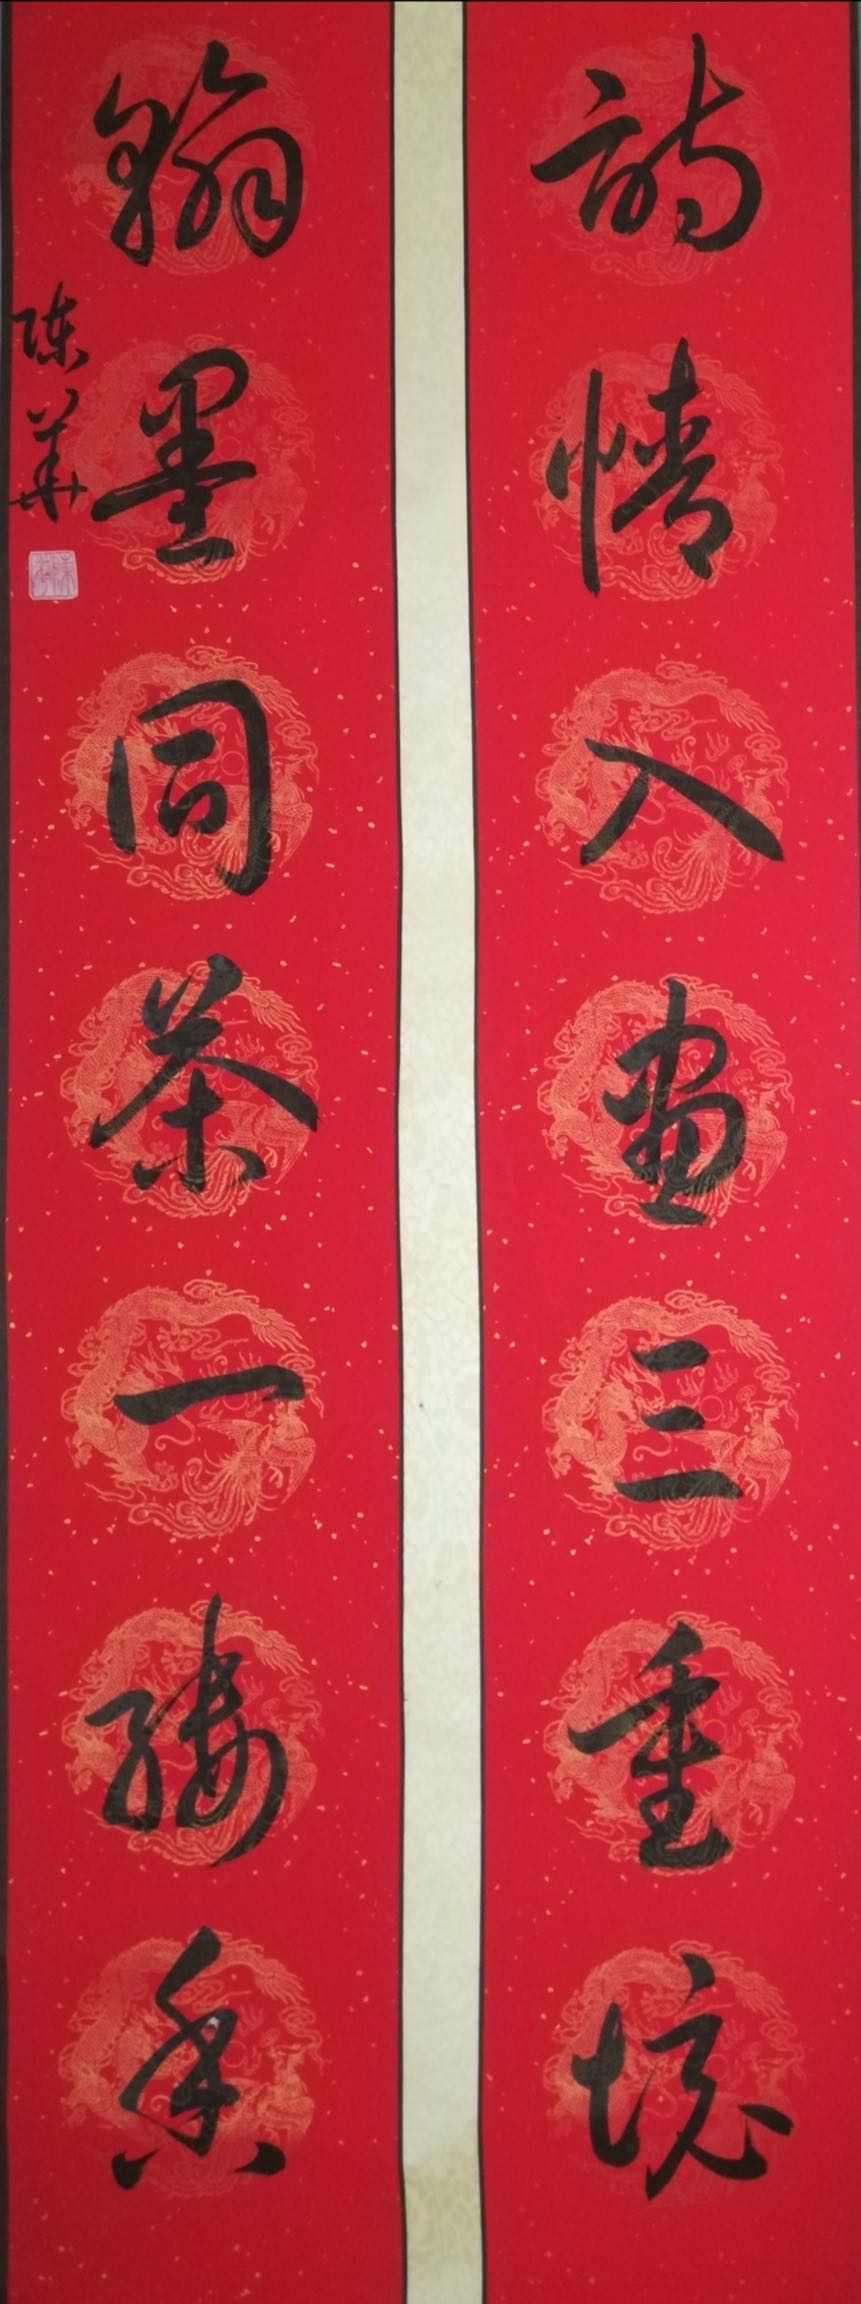 詩情入畫三重境
翰墨同茶一縷香
陳華